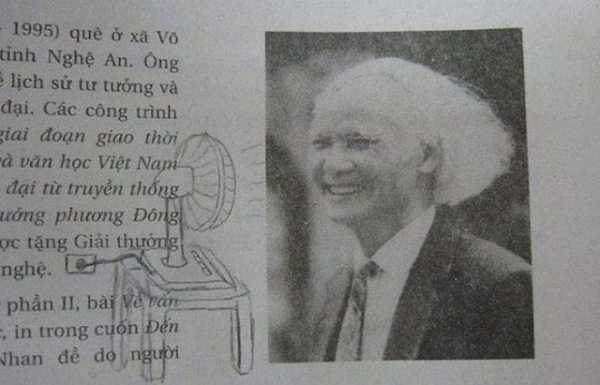 1995) quê ở xã Võ
tỉnh Nghệ An. Ông
lịch sử tư tưởng và
đại. Các công trình
giai đoạn giao thời
và văn học Việt Nam
đại từ truyền thống
hướng phương Đông
được tặng Giải thưởng
nghệ.
phần II, bài Về văn
in trong cuốn Đến
Nhan đề do người